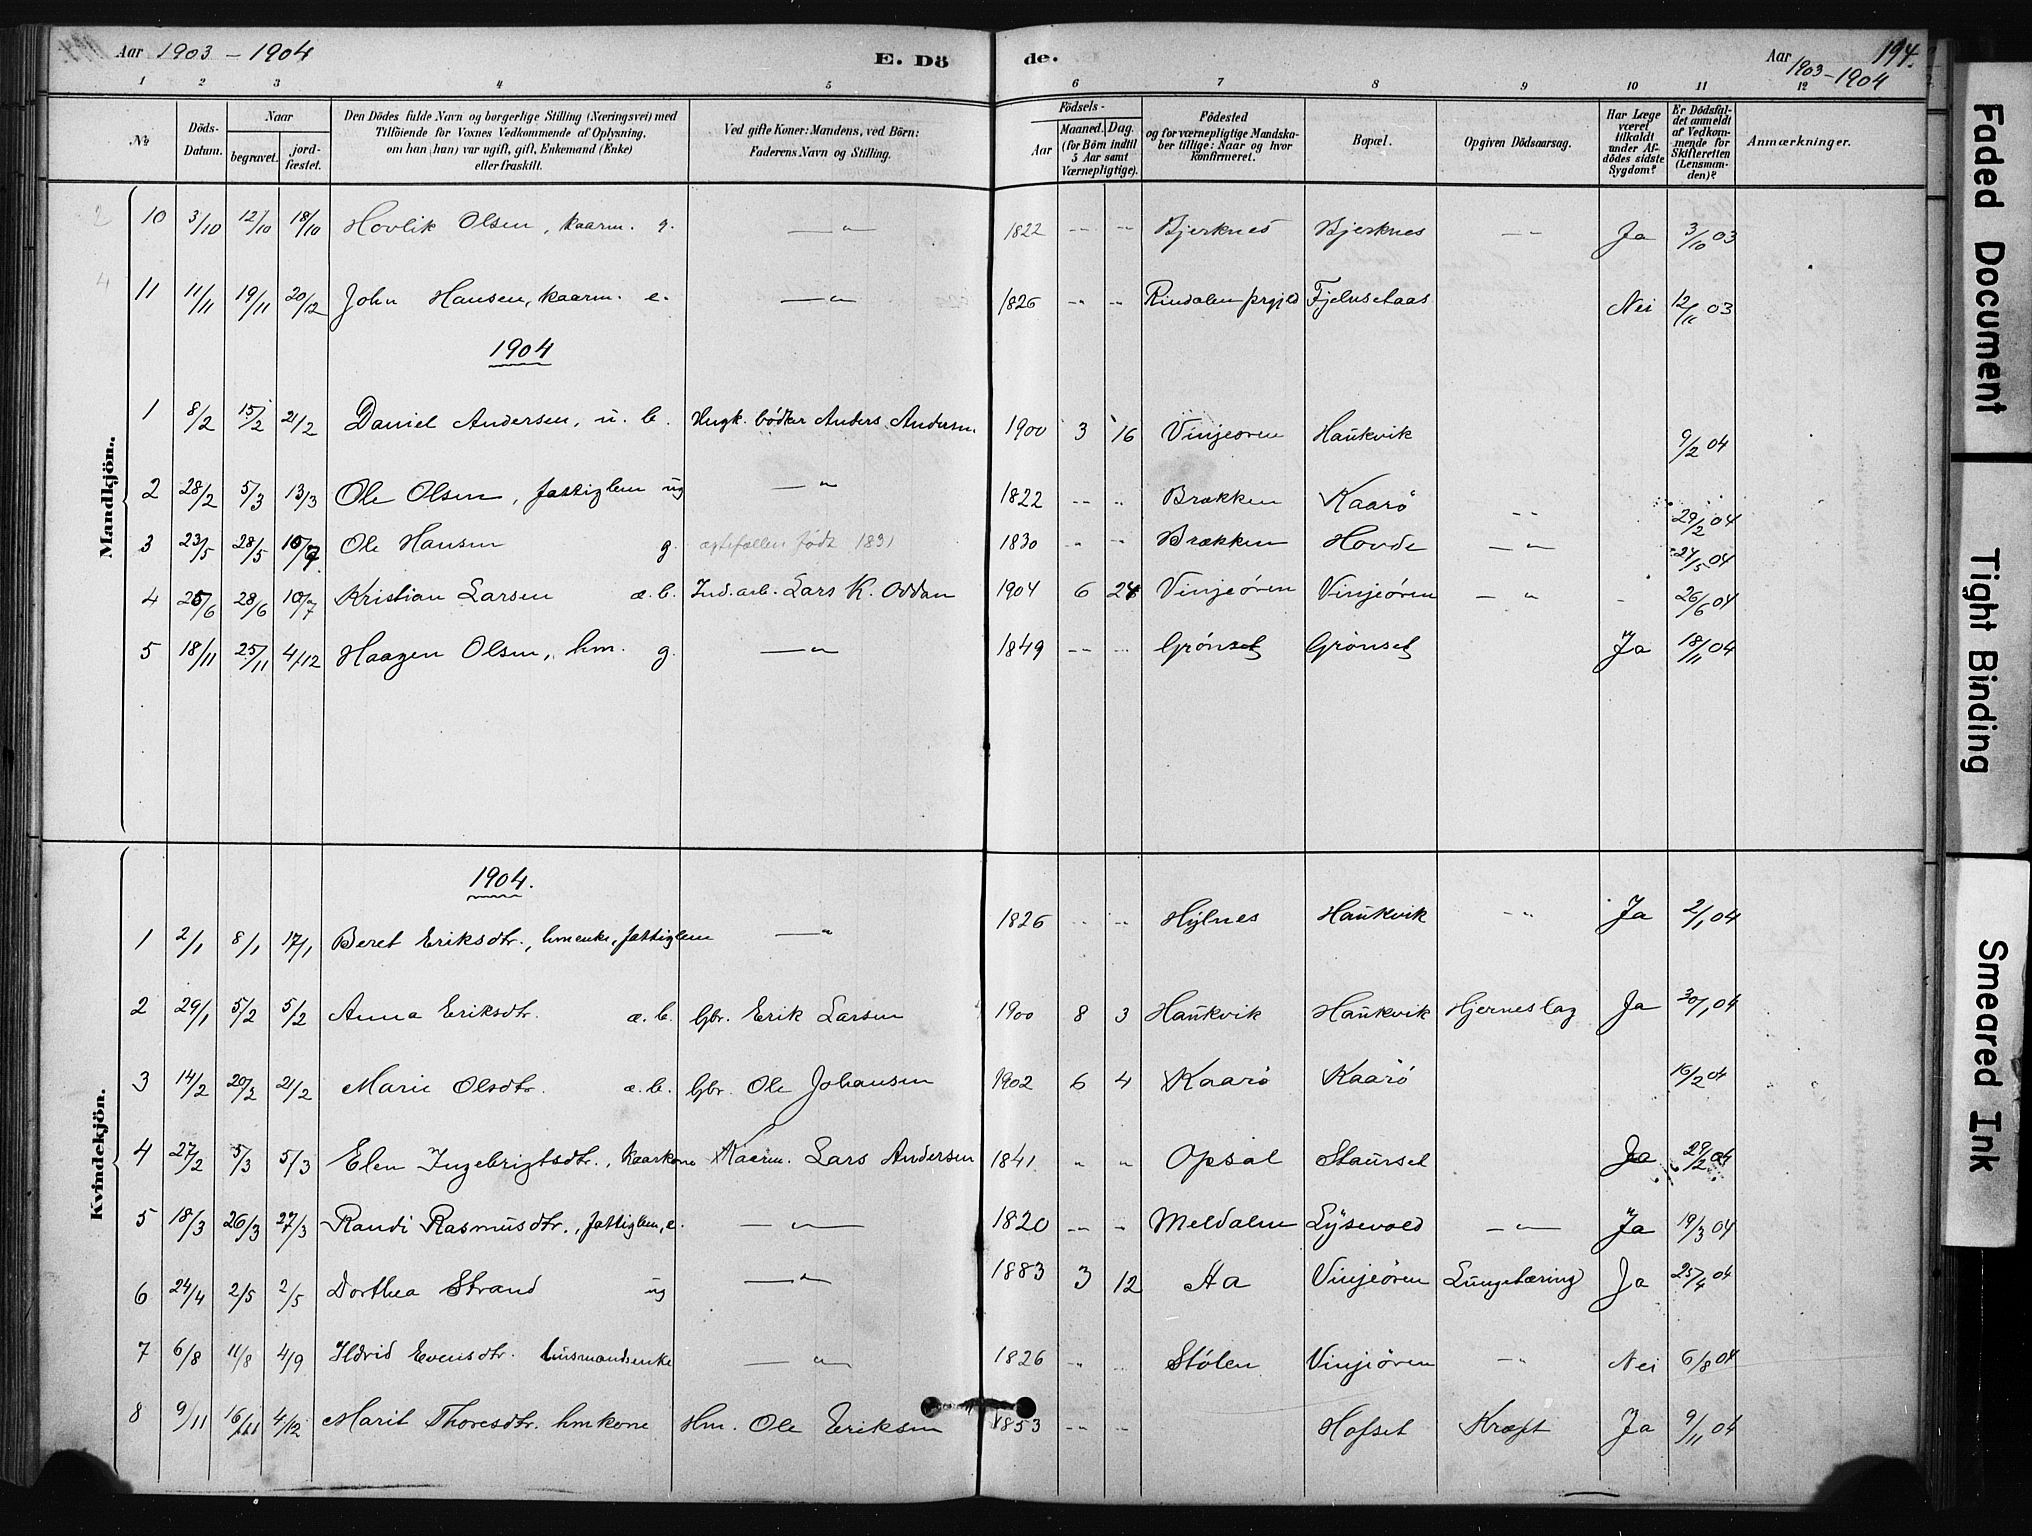 Aar 1903 - 1904 E. Dö de. Aar 1903-1904 194.
1 2 3 4 5 6 7 8 9 10 11 12
No Döds-Datum. Naar begravet. jordfæstet. Den Dödes fulde Navn og borgerlige Stilling (Næringsvei) med Tilföiende for Voxnes Vedkommende af Oplysning, om han (hun) var ugift, gift, Enkemand (Enke) eller fraskilt. Ved gifte Koner: Mandens, ved Börn: Faderens Navn og Stilling. Födsels- Aar Maaned. Dag. (for Börn indtil 5 Aar samt Værnepligtige). Födested og for værnepligtige Mandskaber tillige: Naar og hvor konfirmeret. Bopæl. Opgiven Dödsaarsag. Har Læge været tilkaldt under Afdödes sidste Sygdom? Er Dödsfaldet anmeldt af Vedkommende for Skifteretten (Lensmanden)? Anmærkninger.
Mandkjön.
10 3/10 12/10 18/10 Hovlik Olsen, kaarm. g. —"— 1822 -- -- Bjerknes Bjerknes —"— Ja 3/10 03
11 11/11 19/11 20/12 John Hansen, kaarm. e. —"— 1826 " " Rindalen prgjeld Fjelnsetaas Nei 12/11 03
1904
1 8/2 15/2 21/2 Daniel Andersen, u. b. Ungk. bödker Anders Andersen. 1900 3 16 Vinjeören Haukvik 9/2 04
2 28/2 5/3 13/3 Ole Olsen, fattiglem ug —"— 1822 -- " Brækken Kaarö -- 29/2 04
3 23/5 28/5 10/7 Ole Hansen g. ægtefællen født 1831 1830 " " Brækken Hovde —"— 24/5 04
4 26/6 28/6 10/7 Kristian Larsen æ.b. Ind.arb. Lars K. Oddan 1904 6 24 Vinjeören Vinjeören —"— - 26/6 04
5 18/11 25/11 4/12 Haagen Olsen, hm. g. —"— 1849 -- -- Grönset Grönset Ja 18/11 04
Kvindekjön.
1904.
1 2/1 8/1 17/1 Beret Eriksdtr., hmenke, fattiglem —"— 1826 -- " Hylnes Haukvik -- Ja 2/1 04
2 29/1 5/2 5/2 Anna Eriksdtr. æ.b. Gbr. Erik Larsen 1900 8 3 Haukvik Haukvik Hjerneslag Ja 30/1 04
3 14/2 20/2 21/2 Marie Olsdtr. æ.b. Gbr. Ole Johansen 1902 6 4 Kaarö Kaarö 16/2 04
4 27/2 5/3 5/3 Elen Ingebrigtsdtr., kaarkone Kaarm. Lars Andersen 1841. " " Opsal Staurset Ja 29/2 04
5 18/3 26/3 27/3 Randi Rasmusdtr., fattiglem, e. —"— 1820 -- " Meldalen Lysevold —"— Ja 19/3 04
6 24/4 2/5 2/5 Dorthea Strand ug —"— 1883 3 12 Aa Vinjeören Lungetæring Ja 25/4 04
7 6/8 11/8 4/9 Ildrid Evensdtr. husmandsenke —"— 1826 " " Stölen Vinjeören -- Nei 6/8 04
8 9/11 16/11 4/12 Marit Thoresdtr. hmkone Hm. Ole Eriksen 1853 -- " Hofset Kræft Ja 9/11 04
Faded Document
Tight Binding
Smeared Ink